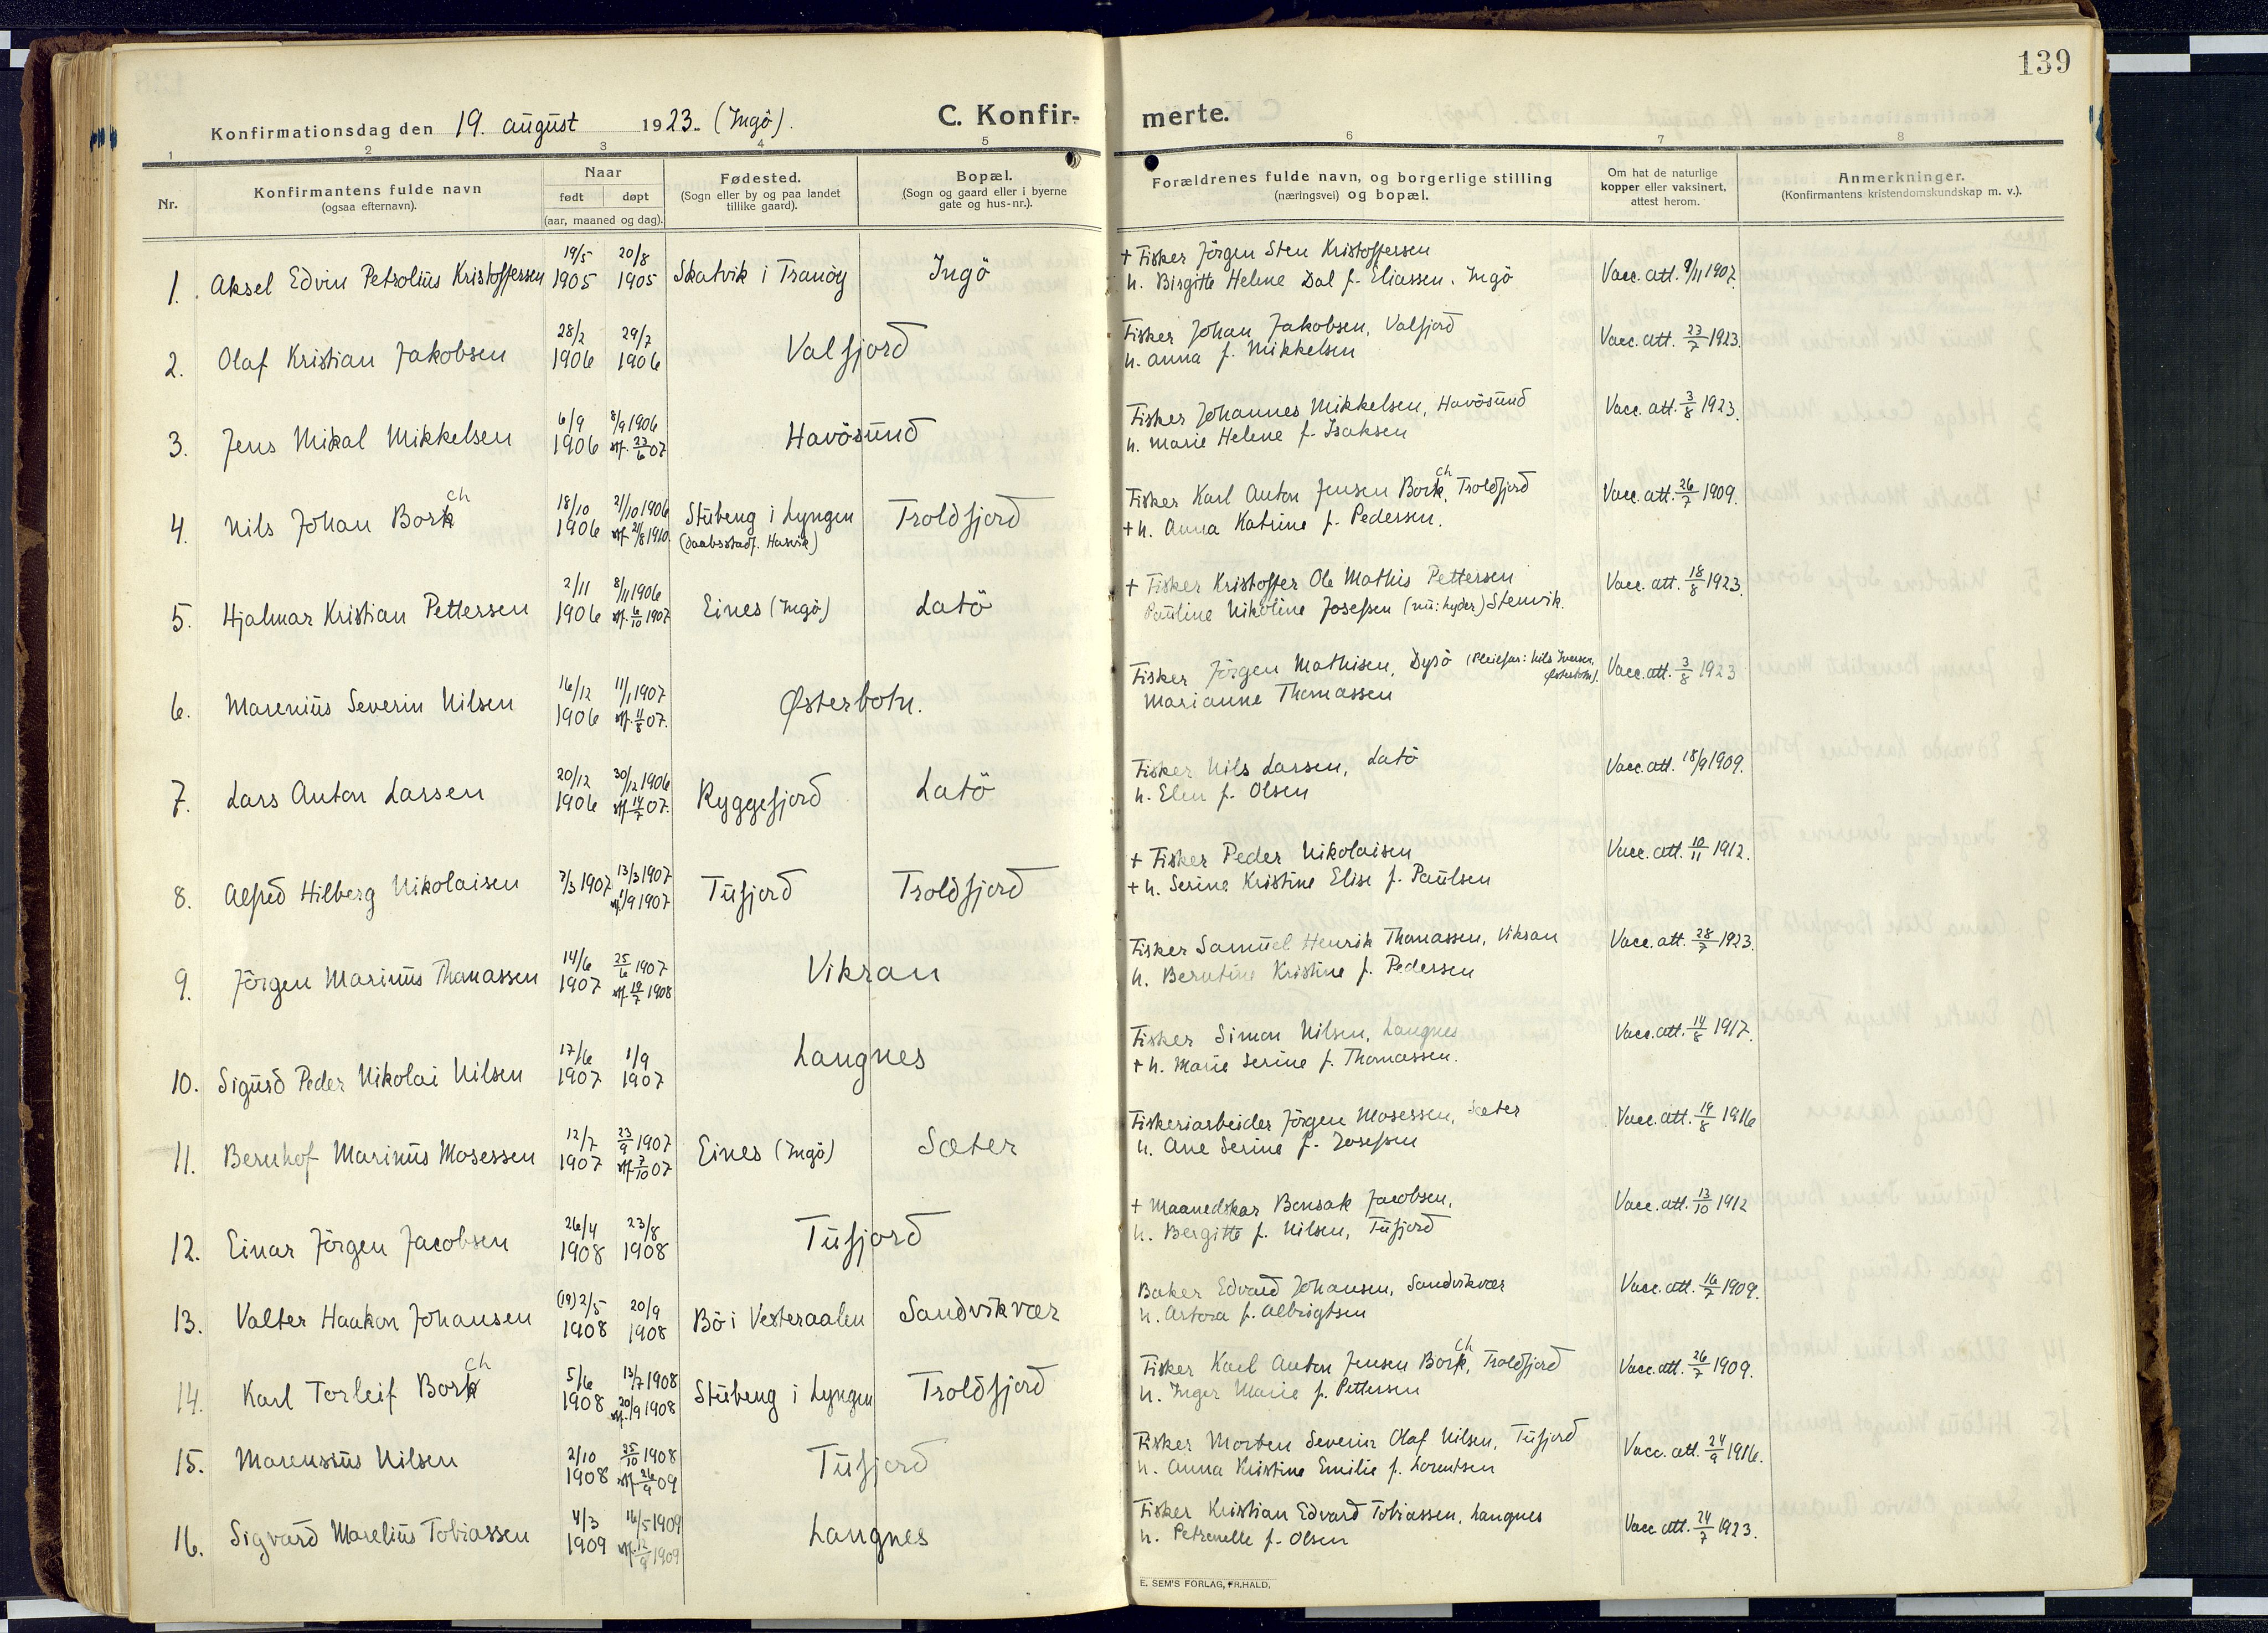 139
Konfirmationsdag den 19. august 1923. (Ingö).
C. Konfir- merte.
1 2 3 4 5 6 7 8
Nr.
Konfirmantens fulde navn
(ogsaa efternavn).
Naar
født døpt
(aar, maaned og dag).
Fødested.
(Sogn eller by og paa landet
tillike gaard).
Bopæl.
(Sogn og gaard eller i byerne
gate og hus-nr.).
Forældrenes fulde navn, og borgerlige stilling
(næringsvei) og bopæl.
Om hat de naturlige
kopper eller vaksinert,
attest herom.
Anmerkninger.
(Konfirmantens kristendomskundskap m. v.).
1. Aksel Edvin Petrolius Kristoffersen 19/5 1905 20/8 1905 Skatvik i Tranöy Ingö
+ Fisker Jörgen Sten Kristoffersen
h. Birgitte Helene Dal f. Eliassen. Ingö
Vacc. att. 9/11 1907.
2. Olaf Kristian Jakobsen 28/2 1906 29/7 1906 Valfjord
Fisker Johan Jakobsen, Valfjord
h. Anna f. Mikkelsen
Vacc. att. 23/7 1923.
3. Jens Mikal Mikkelsen 6/9 1906 8/9 1906 stf. 23/6 07 Havösund
Fisker Johannes Mikkelsen, Havösund
h. Marie Helene f. Isaksen
Vacc. att. 3/8 1923.
4. Nils Johan Bork ch 18/10 1906 21/10 1906 stf. 21/8 1910. Stubeng i Lyngen Troldfjord
(daabsstadf. Hasvik)
Fisker Karl Anton Jensen Bork ch, Troldfjord
+ h. Anna Katrine f. Pedersen.
Vacc. att. 26/7 1909.
5. Hjalmar Kristian Pettersen 2/11 1906 8/11 1906 stf. 6/10 1907 Eines (Ingö) Latö
+ Fisker Kristoffer Ole Mathis Pettersen
Pauline Nikoline Josefsen (nu: Lyder) Stenvik.
Vacc. att. 18/8 1923.
6. Marenius Severin Nilsen 16/12 1906 11/1 1907 stf. 11/8 07. Østerbotn.
Fisker Jörgen Mathisen, Dysö (Pleiefar: Nils Iversen,
Østerbotn).
Marianne Thomassen
Vacc. att. 3/8 1923
7. Lars Anton Larsen 20/12 1906 30/12 1906 stf. 14/7 07. Ryggefjord Latö
Fisker Nils Larsen, Latö
h. Elen f. Olsen
Vacc. att. 18/9 1909.
8. Alfred Hilberg Nikolaisen 7/3 1907 13/3 1907 stf. 1/9 1907 Tufjord Troldfjord
+ Fisker Peder Nikolaisen
+ h. Serine Kristine Elise f. Paulsen
Vacc. att. 10/11 1912.
9. Jörgen Marinus Thomassen 14/6 1907 25/6 1907 stf. 19/7 1908 Vikran
Fisker Samuel Henrik Thomassen, Vikran
h. Berntine Kristine f. Pedersen
Vacc. att. 28/7 1923.
10. Sigurd Peder Nikolai Nilsen 17/6 1907 1/9 1907 Langnes
Fisker Simon Nilsen, Langnes
+ h. Marie Serine f. Thomassen.
Vacc. att. 14/8 1917.
11. Bernhof Marinus Mosessen 12/7 1907 23/9 1907 stf. 7/10 07 Eines (Ingö) Sæter
Fiskeriarbeider Jörgen Mosessen, Sæter
h. Ane Serine f. Josefsen
Vacc. att. 19/8 1916
12. Einar Jörgen Jacobsen 26/4 1908 23/8 1908 Tufjord
+ Maanedskar Bensak Jacobsen,
h. Bergitte f. Nilsen, Tufjord
Vacc. att. 13/10 1912
13. Valter Haakon Johansen (19) 2/5 1908 20/9 1908 Bö i Vesteraalen Sandvikvær
Baker Edvard Johansen, Sandvikvær
h. Artora f. Albrigtsen
Vacc. att. 16/7 1909.
14. Karl Torleif Bork ch 5/6 1908 13/7 1908 stf. 20/9 1908 Stubeng i Lyngen Troldfjord
Fisker Karl Anton Jensen Bork ch, Troldfjord
h. Inger Marie f. Pettersen
Vacc. att. 26/7 1909.
15. Marensius Nilsen 2/10 1908 25/10 1908 stf. 26/9 09 Tufjord
Fisker Morten Severin Olaf Nilsen, Tufjord
h. Anna Kristine Emilie f. Lorentsen
Vacc. att. 24/9 1916.
16. Sigvard Marelius Tobiassen 4/3 1909 16/5 1909 stf. 12/9 1909 Langnes
Fisker Kristian Edvard Tobiassen, Langnes
h. Petrenelle f. Olsen
Vacc. att. 24/7 1923.
E. SEM'S FORLAG, FR.HALD.